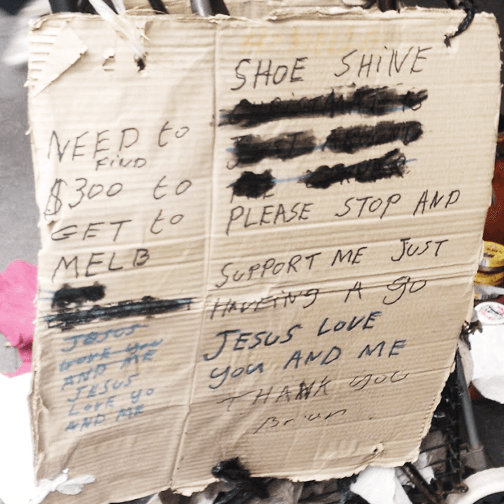 NEED to
FIND
$300 to
GET to
MELB
JESUS
LOVE YOU
AND ME
JESUS
LOVE YO
AND ME
SHOE SHINE
PLEASE STOP AND
SUPPORT ME JUST
HAVEING A go
JESUS LOVE
you AND ME
THANK you